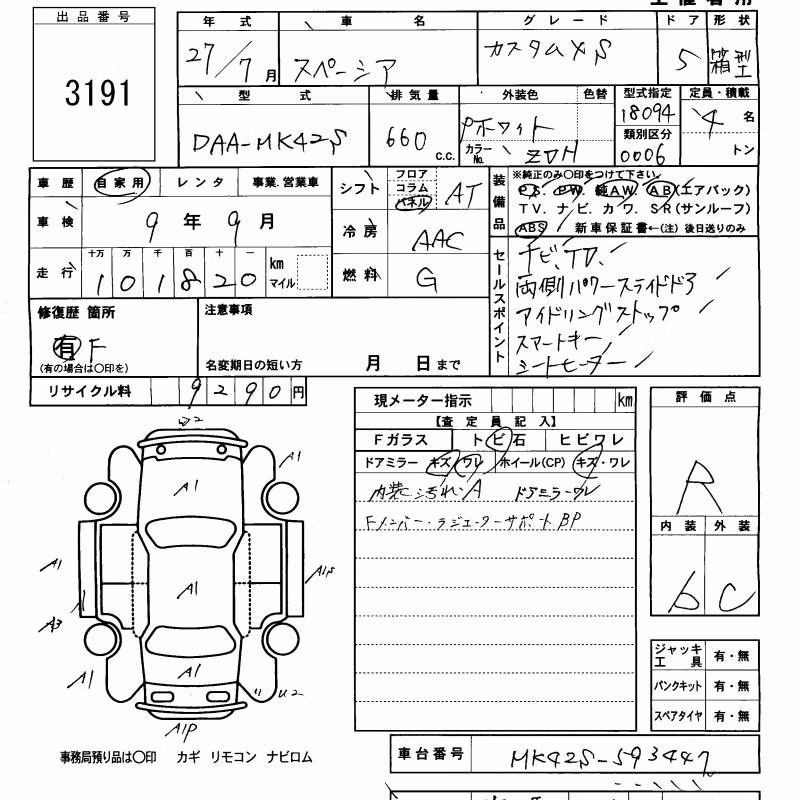 出品番号
3191
年式 車名 グレード ドア 形状
27/7月 スペーシア カスタムXS 5 箱型
型式 排気量 外装色 色替 型式指定 定員・積載
DAA-MK42S 660 c.c. Pホワイト 18094 4名
カラーNo. ZVH 類別区分 0006 トン
車歴 自家用 レンタ 事業.営業車
シフト フロア コラム パネル AT
車検 9年9月
冷房 AAC
走行 十万 万 千 百 十 一 km マイル
101820
燃料 G
装備品 ※純正のみ〇印をつけて下さい。
PS. PW. 純AW. AB(エアバック)
TV. ナビ. カワ. SR(サンルーフ)
ABS 新車保証書←(注) 後日送りのみ
セールスポイント
ナビ、TV、
両側パワースライドドア
アイドリングストップ
スマートキー
シートヒーター
修復歴 箇所
有 F
(有の場合は〇印を)
注意事項
名変期日の短い方 月 日まで
リサイクル料 9290円
現メーター指示 km
【査定員記入】
Fガラス トビ石 ヒビワレ
ドアミラー キズ ワレ ホイール(CP) キズ・ワレ
内装汚れ.A ドアミラーワレ
Fメンバー・ラジエーターサポートBP
評価点
R
内装 外装
b C
ジャッキ 工具 有・無
パンクキット 有・無
スペアタイヤ 有・無
A1
A1
A1
A1S
A1
A3
A1
A1
U2
A1P
事務局預り品は〇印 カギ リモコン ナビロム
車台番号 MK42S-593447